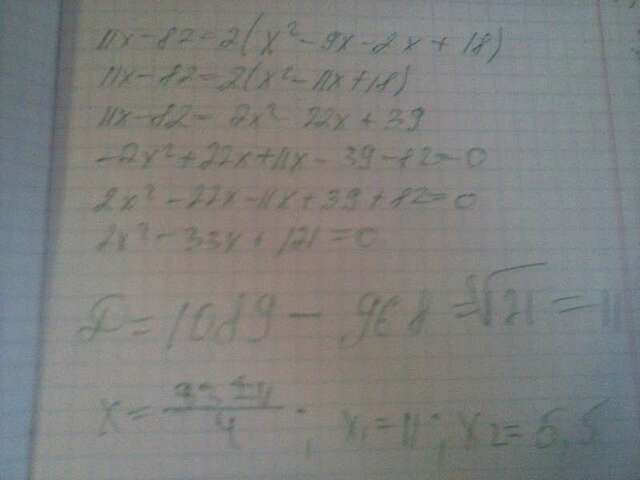 11x-82=2(x²-9x-2x+18)
11x-82=2(x²-11x+18)
11x-82=2x² 22x+39
-2x²+22x+11x-39-82=0
2x²-22x-11x+39+82=0
2x²-33x+121=0
D=1089-968=√121=11
x=(33±11)/4; x₁=11; x₂=5,5